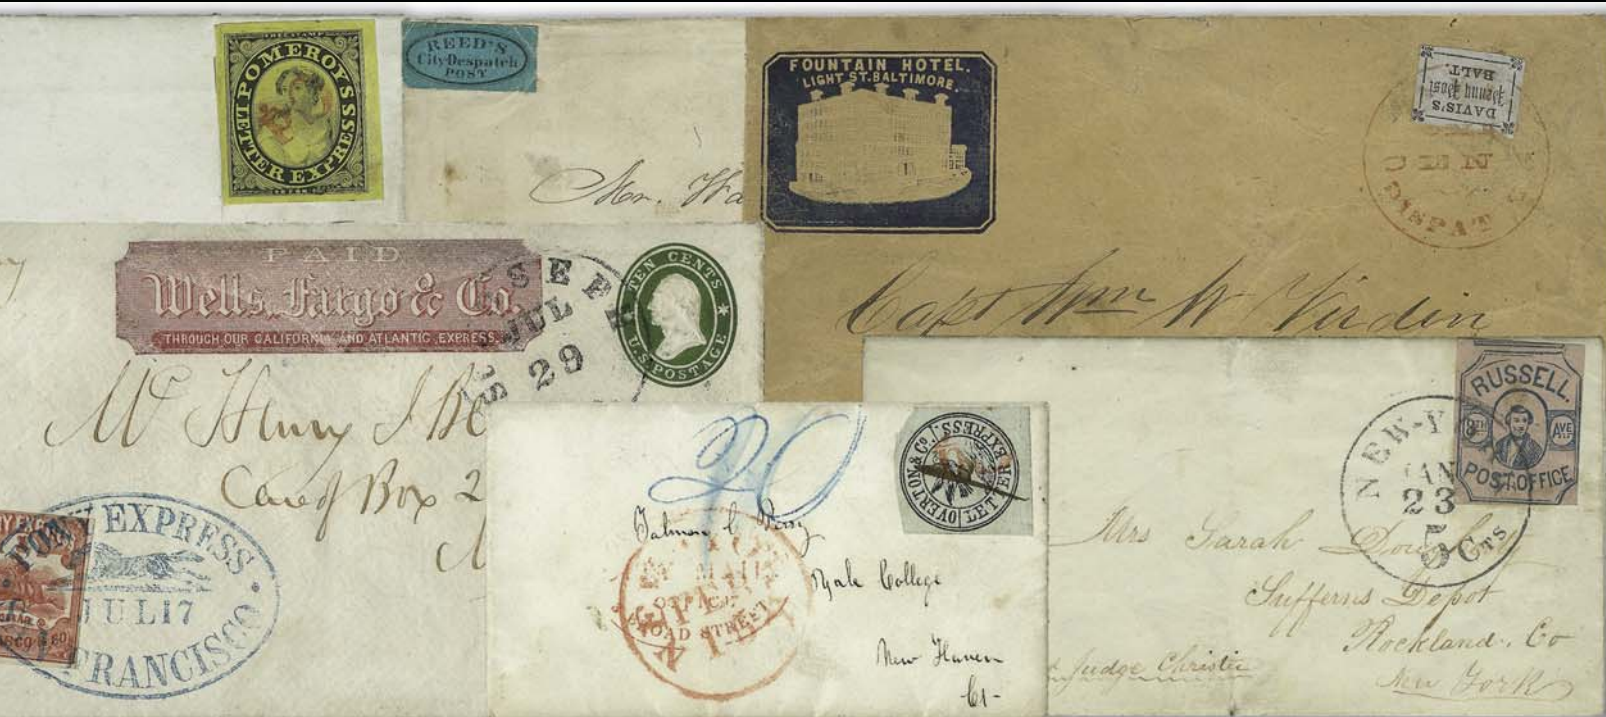 POMEROY'S
LETTER EXPRESS
REED'S
City Despatch
POST
Mr. Wa
FOUNTAIN HOTEL.
LIGHT ST. BALTIMORE.
DAVIS'S
Penny Post
BALT.
DISPATCH
Capt Wm W Virden
PAID
Wells, Fargo & Co.
THROUGH OUR CALIFORNIA AND ATLANTIC EXPRESS.
JUL
29
TEN CENTS
U.S. POSTAGE
Mr Henry J
Care of Box 2
PONY EXPRESS
JUL 17
FRANCISCO
20
OVERTON & CO.
LETTER EXPRESS
MAIL
OFFICE
BROAD STREET
Perry
Yale College
New Haven
Ct-
RUSSELL
8TH AVE
POST OFFICE
NEW-Y
JAN
23
5 Cts
Mrs Sarah
Sufferns Depot
Rockland. Co
New York
Judge Christie